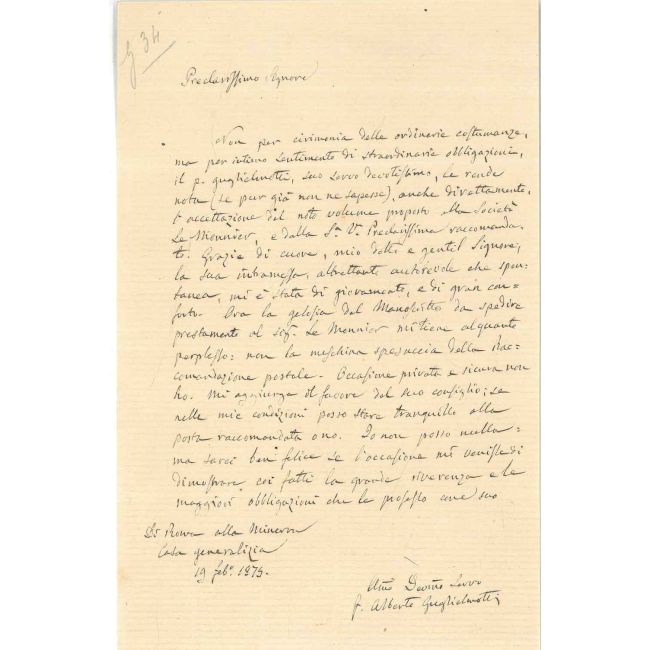 g 34
Preclarissimo Signore
Non per cirimonia delle ordinarie costumanze,
ma per intimo sentimento di straordinarie obbligazioni,
il p. Guglielmotti, suo servo devotissimo, le rende
nota (se pur già non ne sapesse), anche direttamente,
l'accettazione del noto volume proposto alla Società
Le Monnier, e dalla S.a V. Preclarissima raccomanda-
to. Grazie di cuore, mio dotto e gentil Signore;
la sua intramessa, altrettanto autorevole che spon-
tanea, mi è stata di giovamento, e di gran con=
forto. Ora la gelosia del Manoscritto da spedire
prestamente al sig. Le Monnier mi tiene alquanto
perplesso: non la meschina spesuccia della Rac=
comandazione postale. Occasione privata e sicura non
ho. Mi aggiunga il favore del suo consiglio; se
nelle mie condizioni posso stare tranquillo alla
posta raccomandata o no. Io non posso nulla:
ma sarei ben felice se l'occasione mi venisse di
dimostrare coi fatti la grande riverenza e le
maggiori obbligazioni che le professo come suo
Di Roma alla Minerva
Casa generalizia
19 feb.o 1879.
Umo Devmo Servo
f. Alberto Guglielmotti